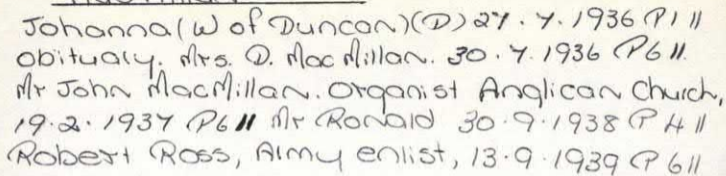 Johanna (W of Duncan)(D) 27.7.1936 P1 II
Obituary. Mrs. D. MacMillan. 30.7.1936 P6 II.
Mr John MacMillan. Organist Anglican Church,
19.2.1937 P6 II Mr Ronald 30.9.1938 P4 II
Robert Ross, Army enlist, 13.9.1939 P6 II